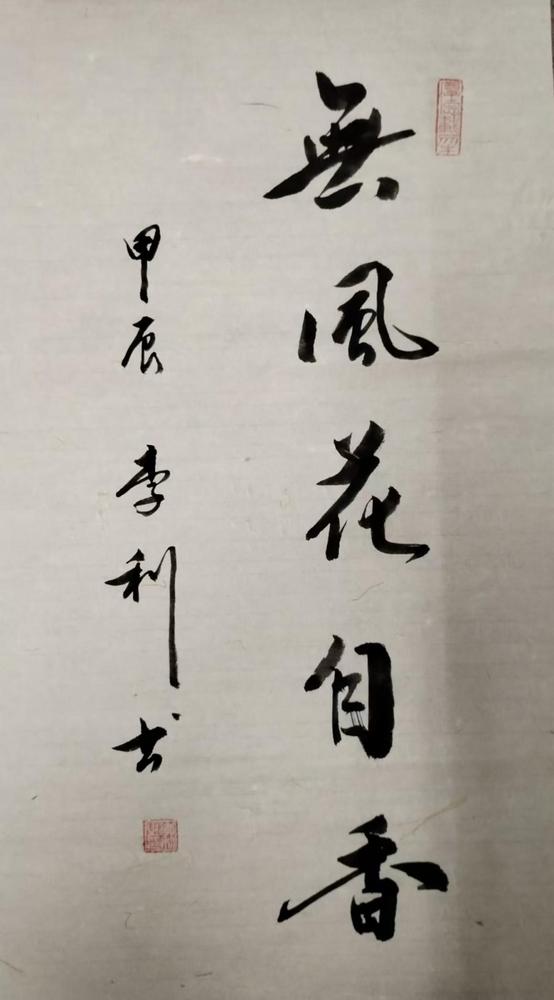 無風花自香
甲辰 李利书